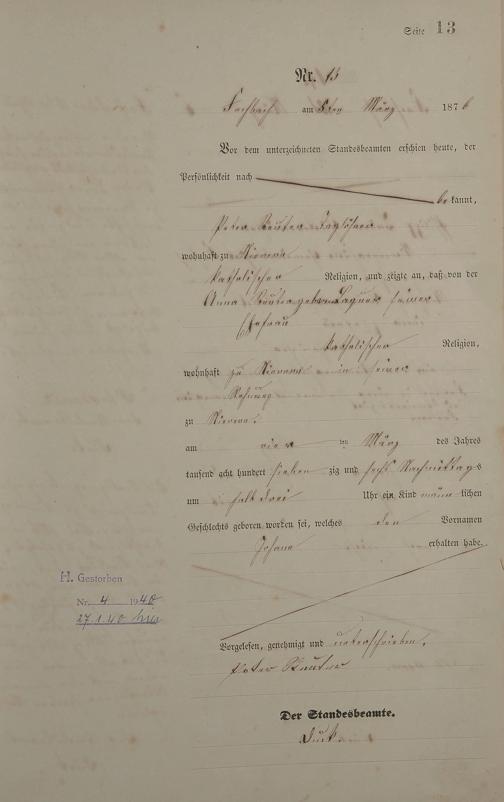 Seite 13
Nr. 13
Fachbach am 5ten März 1876
Vor dem unterzeichneten Standesbeamten erschien heute, der
Persönlichkeit nach
bekannt,
Peter Tagelöhner
wohnhaft zu Nievern
katholischer Religion, und zeigte an, daß von der
Anna geborne seiner
Ehefrau
katholischer Religion,
wohnhaft zu Nievern in seiner
Wohnung
zu Nievern
am vier ten März des Jahres
tausend acht hundert sieben zig und sechs Nachmittags
um halb drei Uhr ein Kind männlichen
Geschlechts geboren worden sei, welches den Vornamen
Johann erhalten habe.
H. Gestorben
Nr. 4 1940
27.1.40 hier
Vorgelesen, genehmigt und unterschrieben.
Peter
Der Standesbeamte.